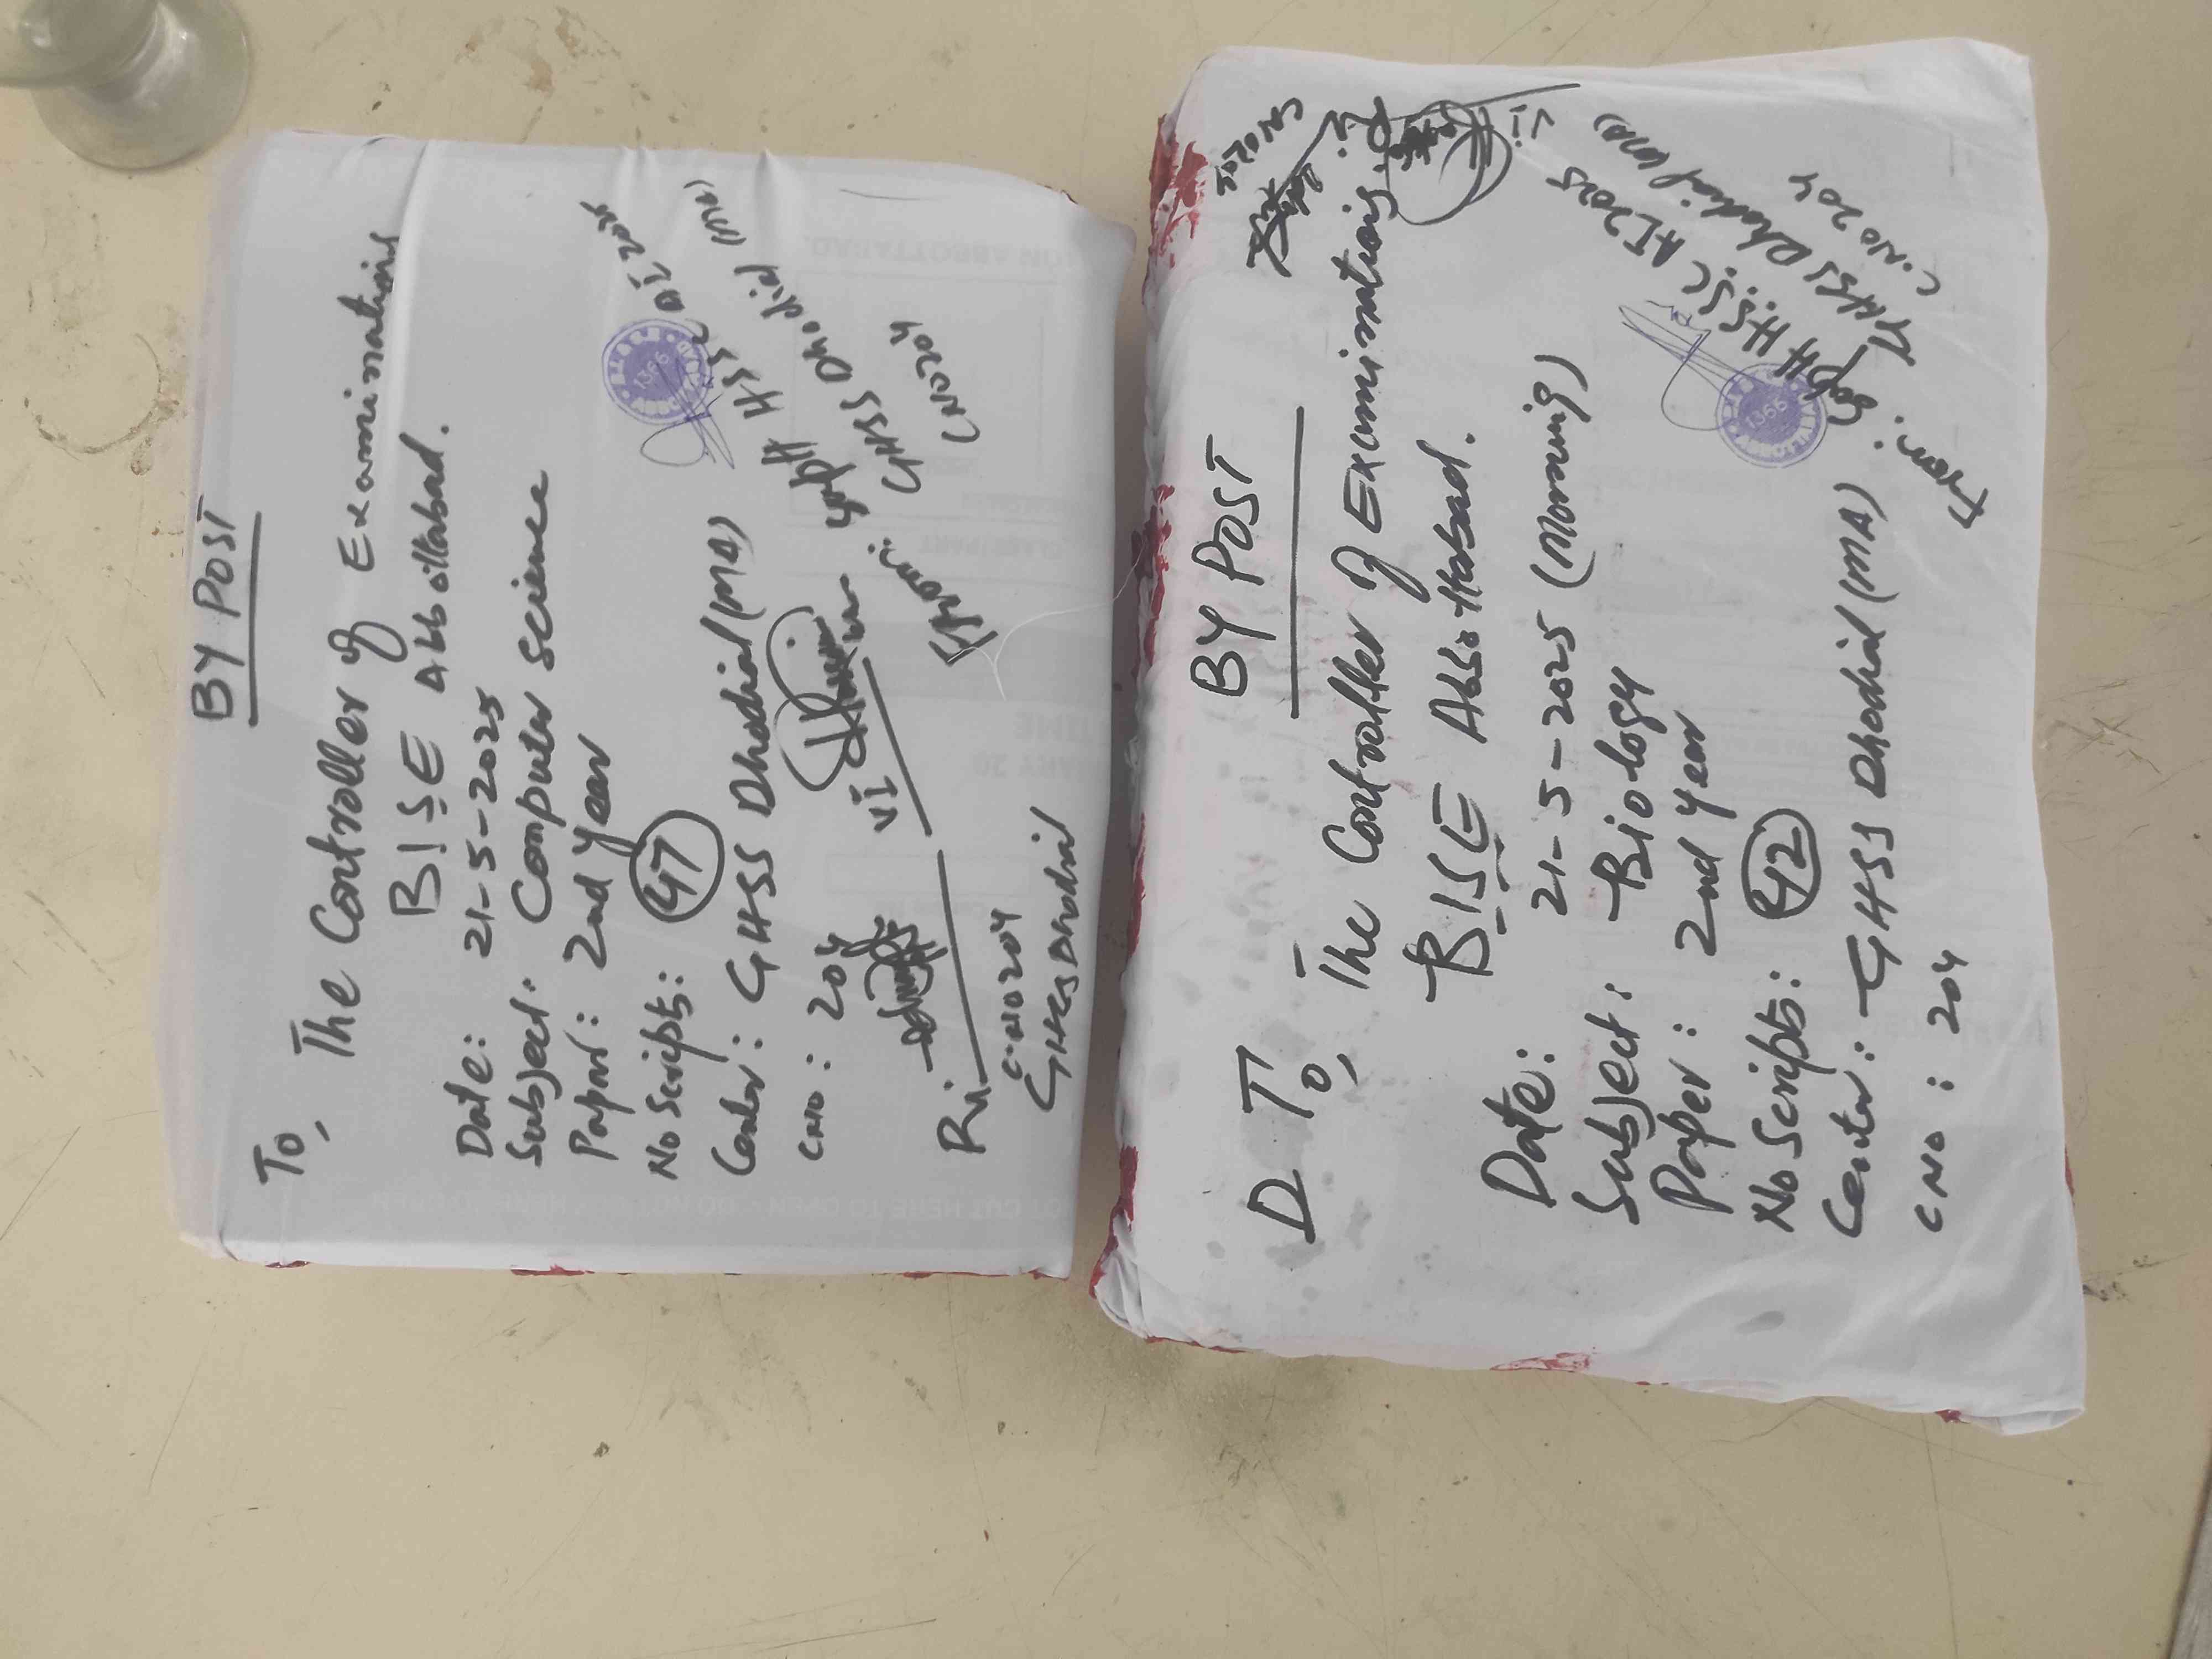 BY POST
To,
The Controller of Examinations
BISE Abbottabad.
Date: 21-5-2025
Subject: Computer Science
Paper: 2nd Year
No Scripts: 47
Center: GHSS Dhodial (MA)
CNO: 204
Ri
C.NO 204
GHSS Dhodial
Vi
From:
HSSC AI 2025
GHSS Dhodial (MA)
CNO 204
1366
BY POST
D To,
The Controller of Examinations.
BISE Abbottabad.
Date: 21-5-2025 (Morning)
Subject: Biology
Paper: 2nd Year
No Scripts: 42
Center: GHSS Dhodial (MA)
CNO: 204
Ri
Vi
From:
HSSC AI 2025
GHSS Dhodial (MA)
C.NO 204
1366